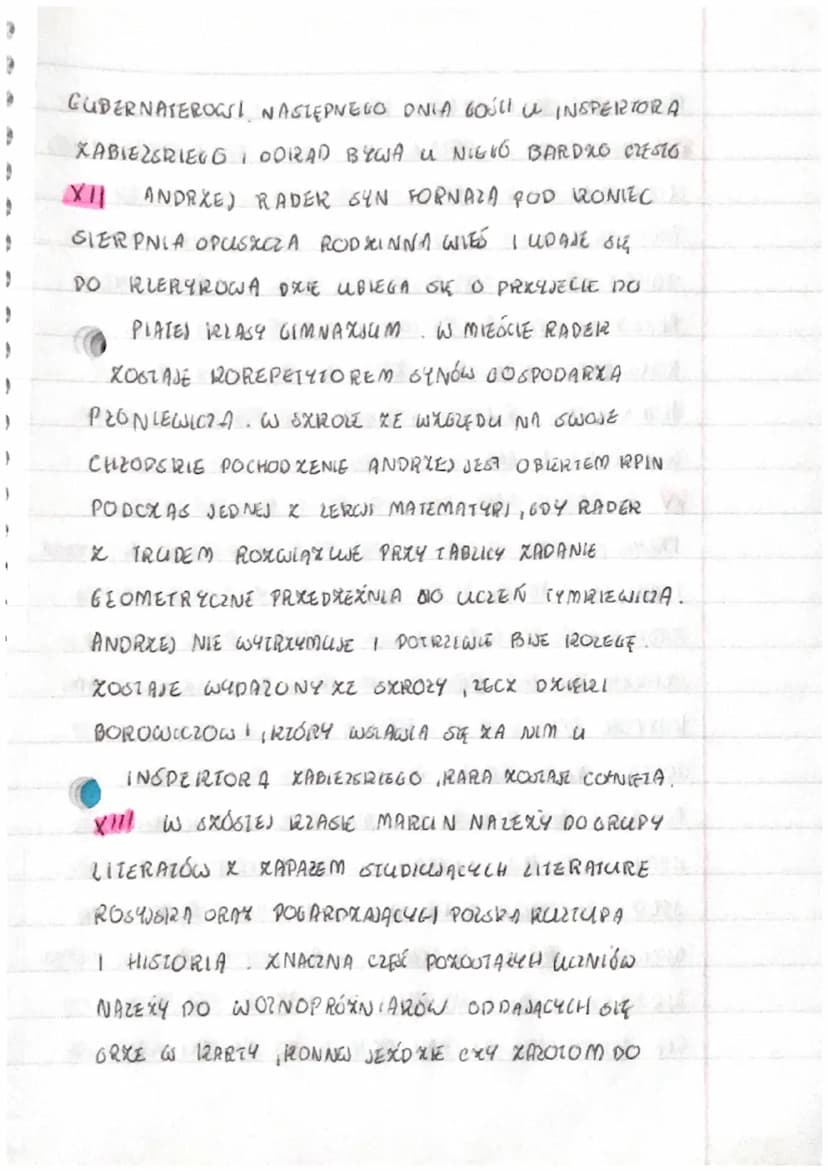 GUBERNATEROWSI. NASTĘPNEGO DNIA GOŚCI U INSPEKTORA
ZABIELSKIEGO I ODKĄD BYWA U NIEGO BARDZO CZĘSTO
XII ANDRZEJ RADEK SYN FORNALA POD KONIEC
SIERPNIA OPUSZCZA RODZINNA WIEŚ I UDAJE SIĘ
DO KLERYKOWA DZIE UBIEGA SIĘ O PRZYJĘCIE DO
PIATEJ KLASY GIMNAZJUM. W MIEŚCIE RADEK
ZOSTAJE KOREPETYTOREM SYNÓW GOSPODARZA
PŁONIEWICZA. W SZKOLE ZE WZGLĘDU NA SWOJE
CHŁOPSKIE POCHODZENIE ANDRZEJ JEST OBIEKTEM KPIN
PODCZAS JEDNEJ Z LEKCJI MATEMATYKI, GDY RADEK
Z TRUDEM ROZWIĄZUJE PRZY TABLICY ZADANIE
GEOMETRYCZNE PRZEDRZEŹNIA GO UCZEŃ TYMKIEWICZA.
ANDRZEJ NIE WYTRZYMUJE I DOTKLIWIE BIJE KOLEGĘ.
ZOSTAJE WYDALONY ZE SZKOŁY, LECZ DZIĘKI
BOROWICZOWI, KTÓRY WSTAWIA SIĘ ZA NIM U
INSPEKTORA ZABIELSKIEGO, KARA ZOSTAJE COFNIĘTA.
XIII W SZÓSTEJ KLASIE MARCIN NALEŻY DO GRUPY
LITERATÓW Z ZAPAŁEM STUDIUJĄCYCH LITERATURE
ROSYJSKA ORAZ POGARDZAJĄCYCH POLSKA KULTURA
I HISTORIA. ZNACZNA CZĘŚĆ POZOSTAŁYCH UCZNIÓW
NALEŻY DO WOLNOPRÓŻNIAKÓW ODDAJĄCYCH SIĘ
GRZE W KARTY, KONNEJ JEŹDZIE CZY ZALOTOM DO